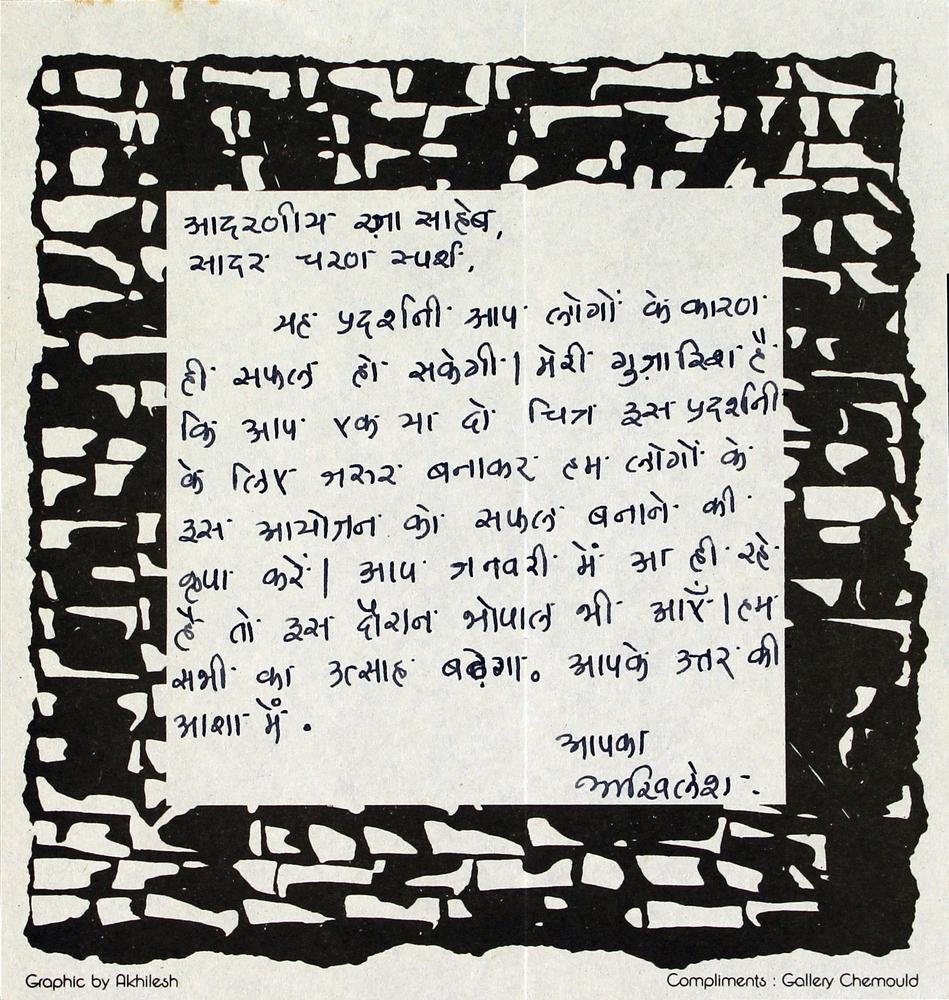 आदरणीय रज़ा साहेब,
सादर चरण स्पर्श,
यह प्रदर्शनी आप लोगों के कारण
ही सफल हो सकेगी। मेरी गुज़ारिश है
कि आप एक या दो चित्र इस प्रदर्शनी
के लिए जरुर बनाकर हम लोगों के
इस आयोजन को सफल बनाने की
कृपा करें। आप जनवरी में आ ही रहे
हैं तो इस दौरान भोपाल भी आएँ। हम
सभी का उत्साह बढ़ेगा. आपके उत्तर की
आशा में.
आपका
अखिलेश.
Graphic by Akhilesh
Compliments : Gallery Chemould